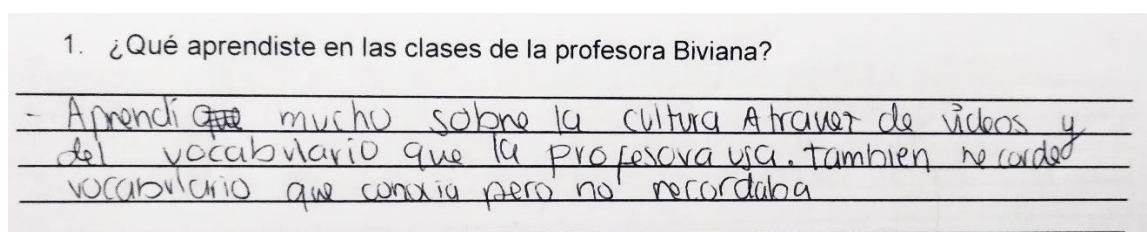 1. ¿Qué aprendiste en las clases de la profesora Biviana?
- Aprendi mucho sobre la cultura Atravez de videos y
del vocabulario que la profesora usa. tambien recorde
vocabulario que conoxia pero no recordaba